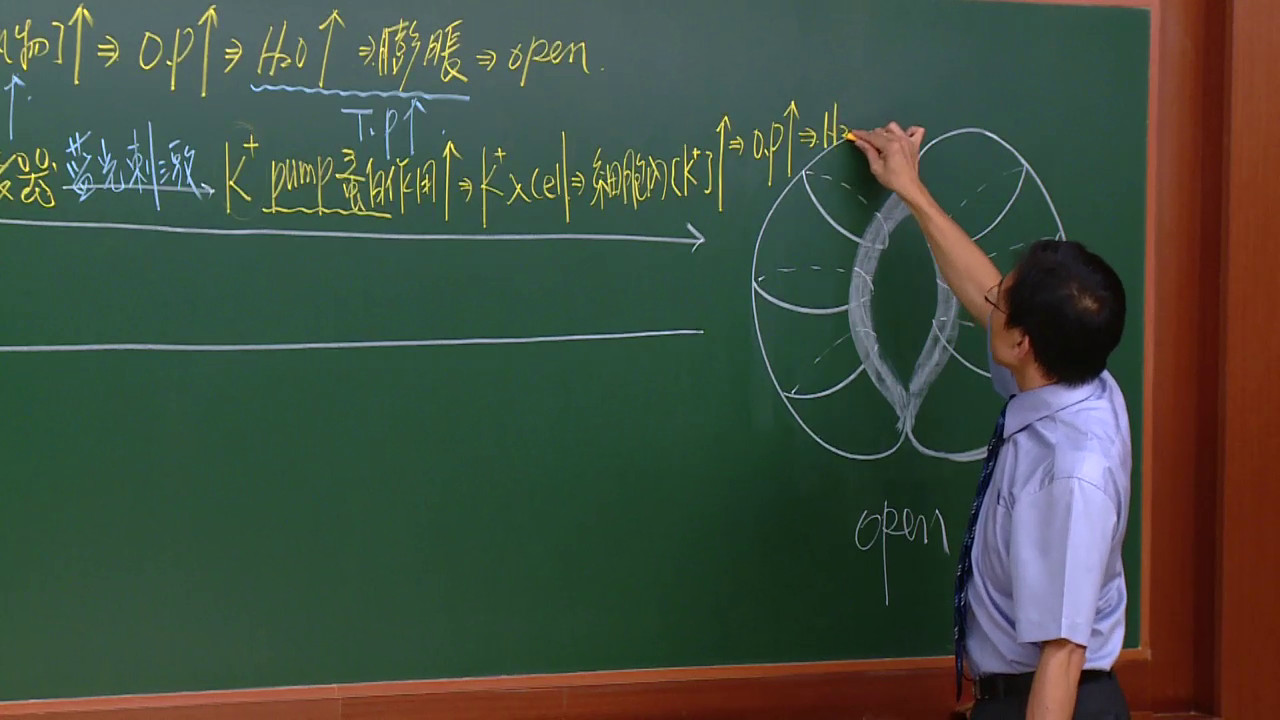 物]↑⇒O.P↑⇒H₂O↑⇒膨脹⇒open.
↑.
T.P↑.
器 藍光刺激→ K⁺ pump蛋白作用↑⇒K⁺入cell⇒細胞內[K⁺]↑⇒O.P↑⇒H₂
open